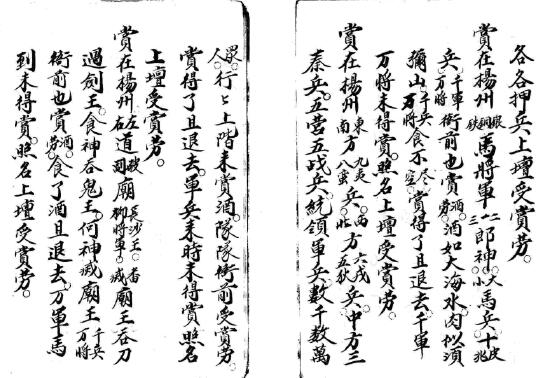 各各押兵上壇受賞劳。
賞在楊州銀銅鉄馬將軍一二三郎神。大小馬兵。十
兵。千軍万將衙前也賞酒劳。酒如大海水肉似須
彌山。千兵万將食不尽。賞得了且退去。千軍
万將未得賞。照名上壇受賞劳
賞在楊州東南方九夷八蛮兵。西北方六戎五狄兵。中方三
秦兵。五营五战兵。統領軍兵。數千數萬
眾人。行〻上階来賞酒。隊隊衙前受賞劳。
賞得了且退去。軍兵来時未得賞。照名
上壇受賞劳。
賞在楊州左右道。廟長沙王。柳將軍。廟王吞刀
過劍王。食神吞鬼王。何神廟王。千兵万將
衙前也賞酒劳。食了酒且退去。万軍馬
到未得賞。照名上壇受賞劳。